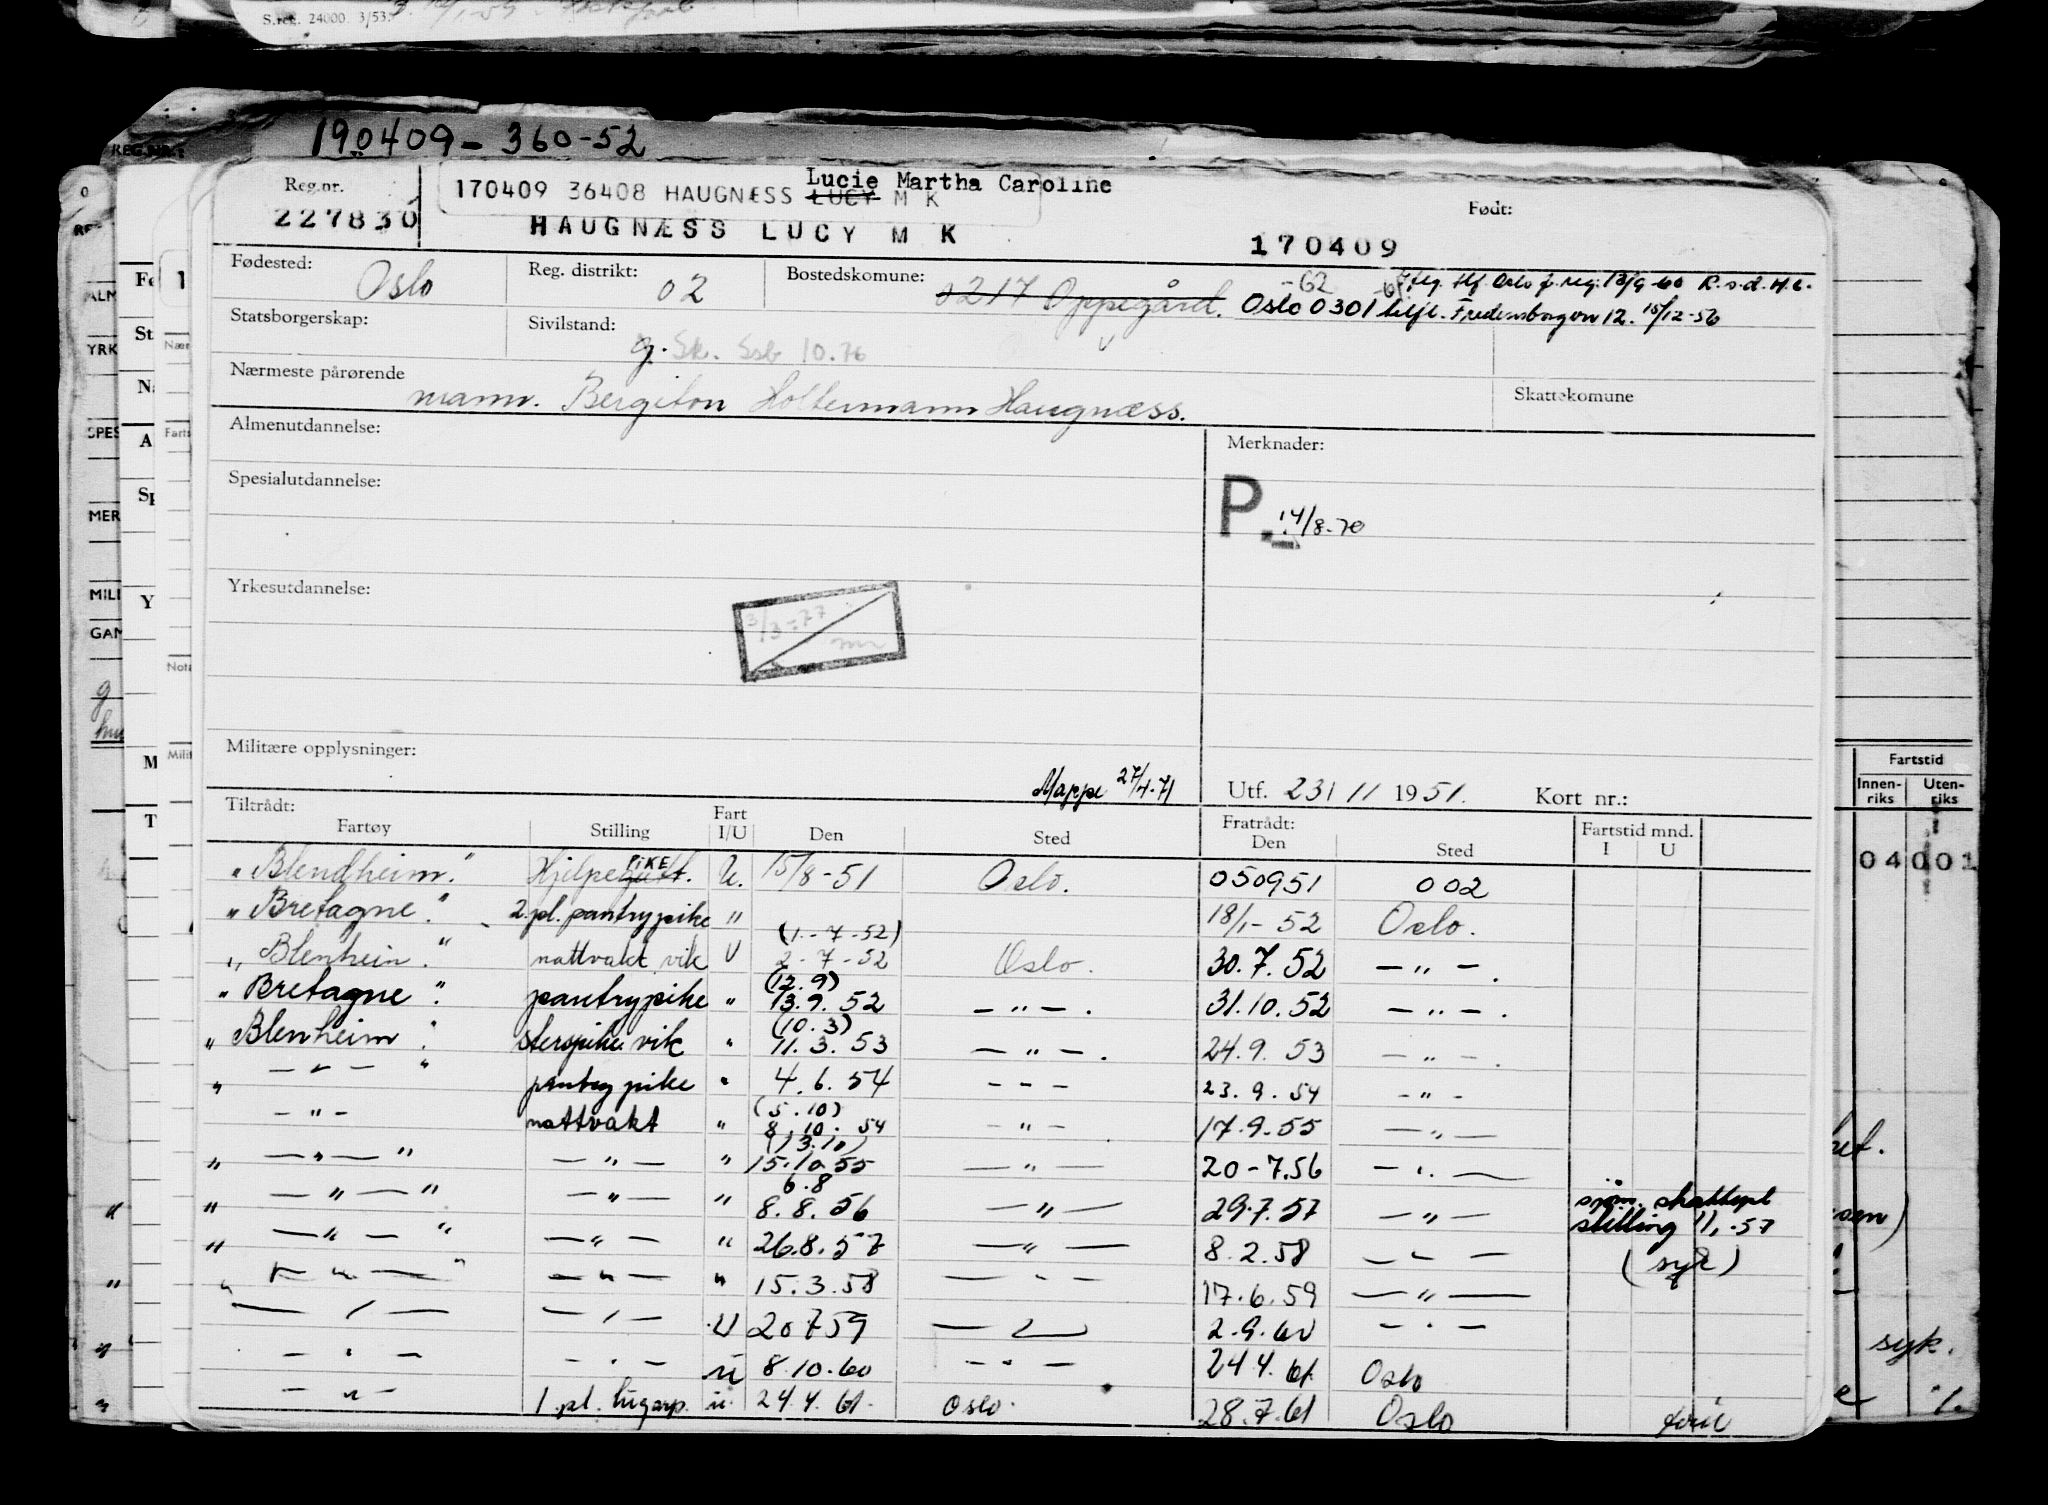 S.reg. 24000. 3/53.
190409-360-52
Reg.nr.
227830
170409 36408 HAUGNÆSS LUCY M K
Lucie Martha Caroline
HAUGNÆSS LUCY M K
Født:
170409
Fødested: Oslo
Reg. distrikt: 02
Bostedskomune: 0217 Oppegård. Oslo 0301
-62
Oslo f. reg: 13/9-60
15/12-56
Statsborgerskap:
Sivilstand: g. Sk. Ssb 10.76
Nærmeste pårørende
mann. Bergiton Holtermann Haugnæss.
Skattekomune
Almenutdannelse:
Merknader:
Spesialutdannelse:
P. 14/8-70
Yrkesutdannelse:
3/3-77
Militære opplysninger:
Mappe 27/4-71
Utf. 23/11 1951.
Kort nr.:
Tiltrådt:
Fartøy Stilling Fart I/U Den Sted
Fratrådt:
Den Sted
Fartstid mnd.
I U
"Blendheim." Hjelpegutt. PIKE U. 15/8-51 Oslo. 050951 002
"Bretagne." 2.pl. pantrypike " 18/1-52 Oslo.
(1.-7-52)
"Blenhein." nattvakt vik U 2-7-52 Oslo. 30.7.52 —"—.
(12.9)
"Bretagne". pantrypike " 13.9.52 —"—. 31.10.52 —"—.
(10.3)
"Blenheim". vik " 11.3.53 —"—. 24.9.53 —"—.
" —"— " pantry pike " 4.6.54 --- 23.9.54 -"-
(5.10)
-"- nattvakt " 8.10.54 -"- 17.9.55 —"—
(13.10)
" —"—" —"— " 15.10.55 —"— 20-7.56 —"—
6.8
" —"—" —"— " 8.8.56 —"— 29.7.57 —"— sjøm. skattepl
stilling 1/1-57
" —"— " —"— " 26.8.57 —"— 8.2.58 —"— (syk)
" —"—" —"— " 15.3.58 —"— 17.6.59 —"—
—"— —"— U 20759 —"— 2.9.60 —"—
—"— —"— u 8.10.60 —"— 24.4.61. Oslo
—"— 1.pl. lugarp. u. 24.4.61. Oslo. 28.7.61 Oslo
Fartstid
Innen-
riks
Uten-
riks
04001
syk.